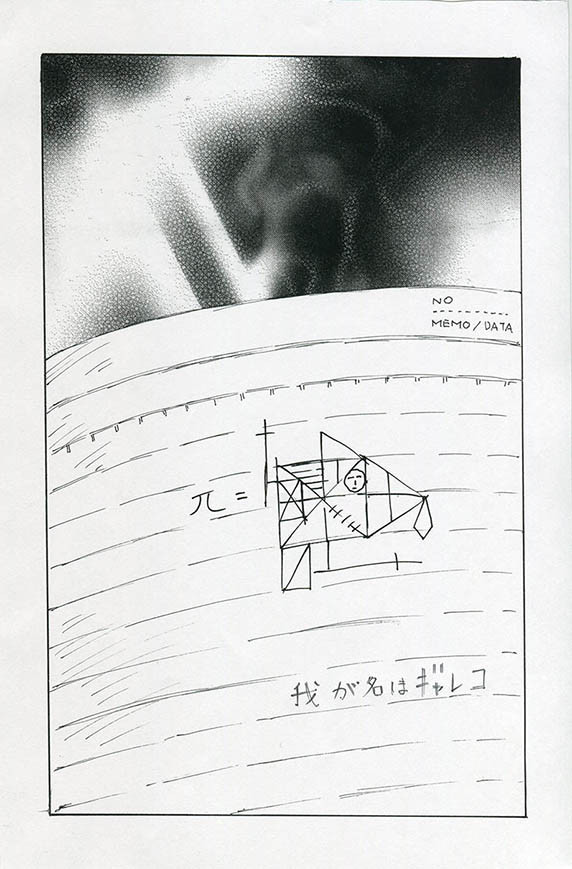 NO
MEMO/DATA
π =
我が名はギャレコ